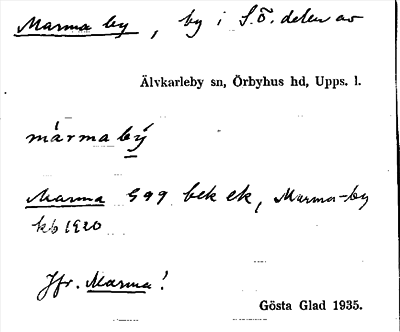 Marma by, by i S.Ö. delen av
Älvkarleby sn, Örbyhus hd, Upps. l.
màrmabý
Marma 599 bek ek, Marma-by
kb 1920
Jfr. Marma!
Gösta Glad 1935.